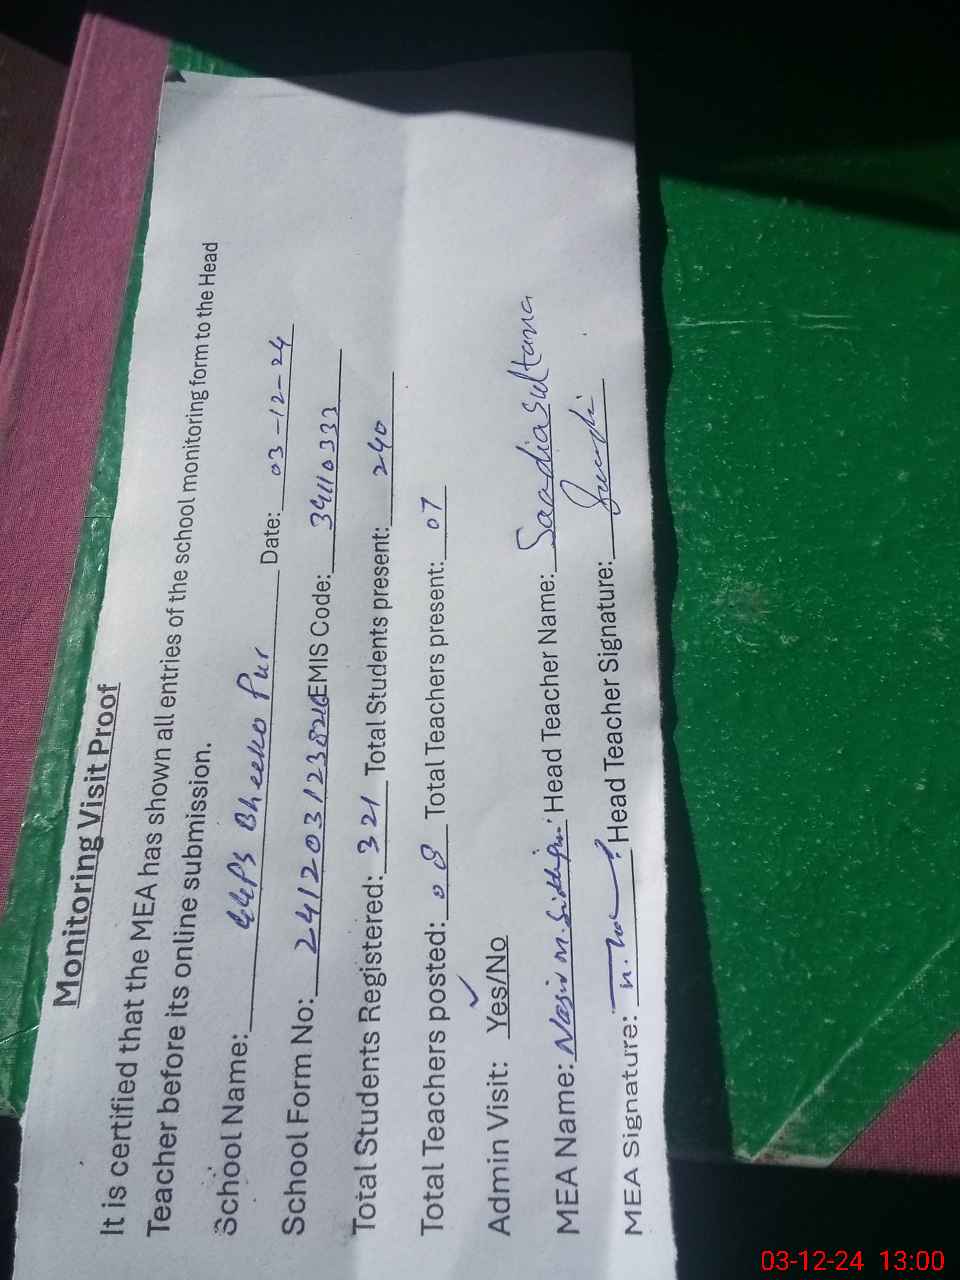 Monitoring Visit Proof
It is certified that the MEA has shown all entries of the school monitoring form to the Head
Teacher before its online submission.
School Name: Bheeko Pur Date: 03-12-24
School Form No: EMIS Code: 39110333
Total Students Registered: 321 Total Students present: 240
Total Teachers posted: 08 Total Teachers present: 07
Admin Visit: Yes/No
MEA Name: Nasir M. Head Teacher Name: Saadia Sultana
MEA Signature: Head Teacher Signature:
03-12-24 13:00